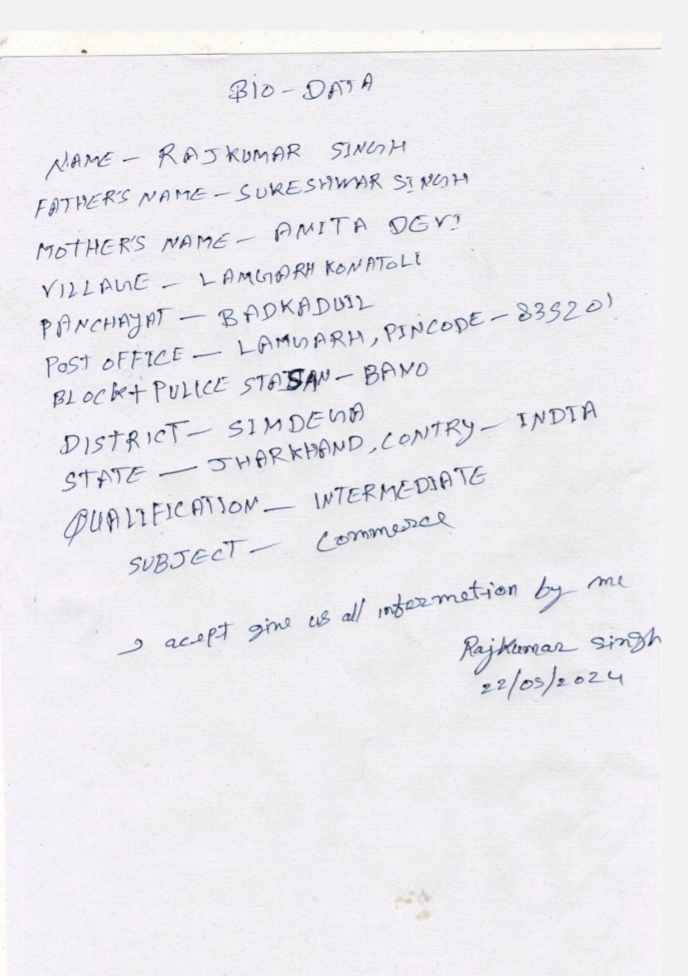 BIO-DATA
NAME - RAJKUMAR SINGH
FATHER'S NAME - SURESHWAR SINGH
MOTHER'S NAME - ANITA DEVI
VILLAGE - LAMGARH KONATOLI
PANCHAYAT - BADKADUIL
POST OFFICE - LAMGARH, PINCODE - 835201
BLOCK+ PULICE STATSAN - BANO
DISTRICT - SIMDEGA
STATE - JHARKHAND, CONTRY - INDIA
QUALIFICATION - INTERMEDIATE
SUBJECT - Commerce
I acept give us all infermetion by me
Rajkumar singh
22/05/2024